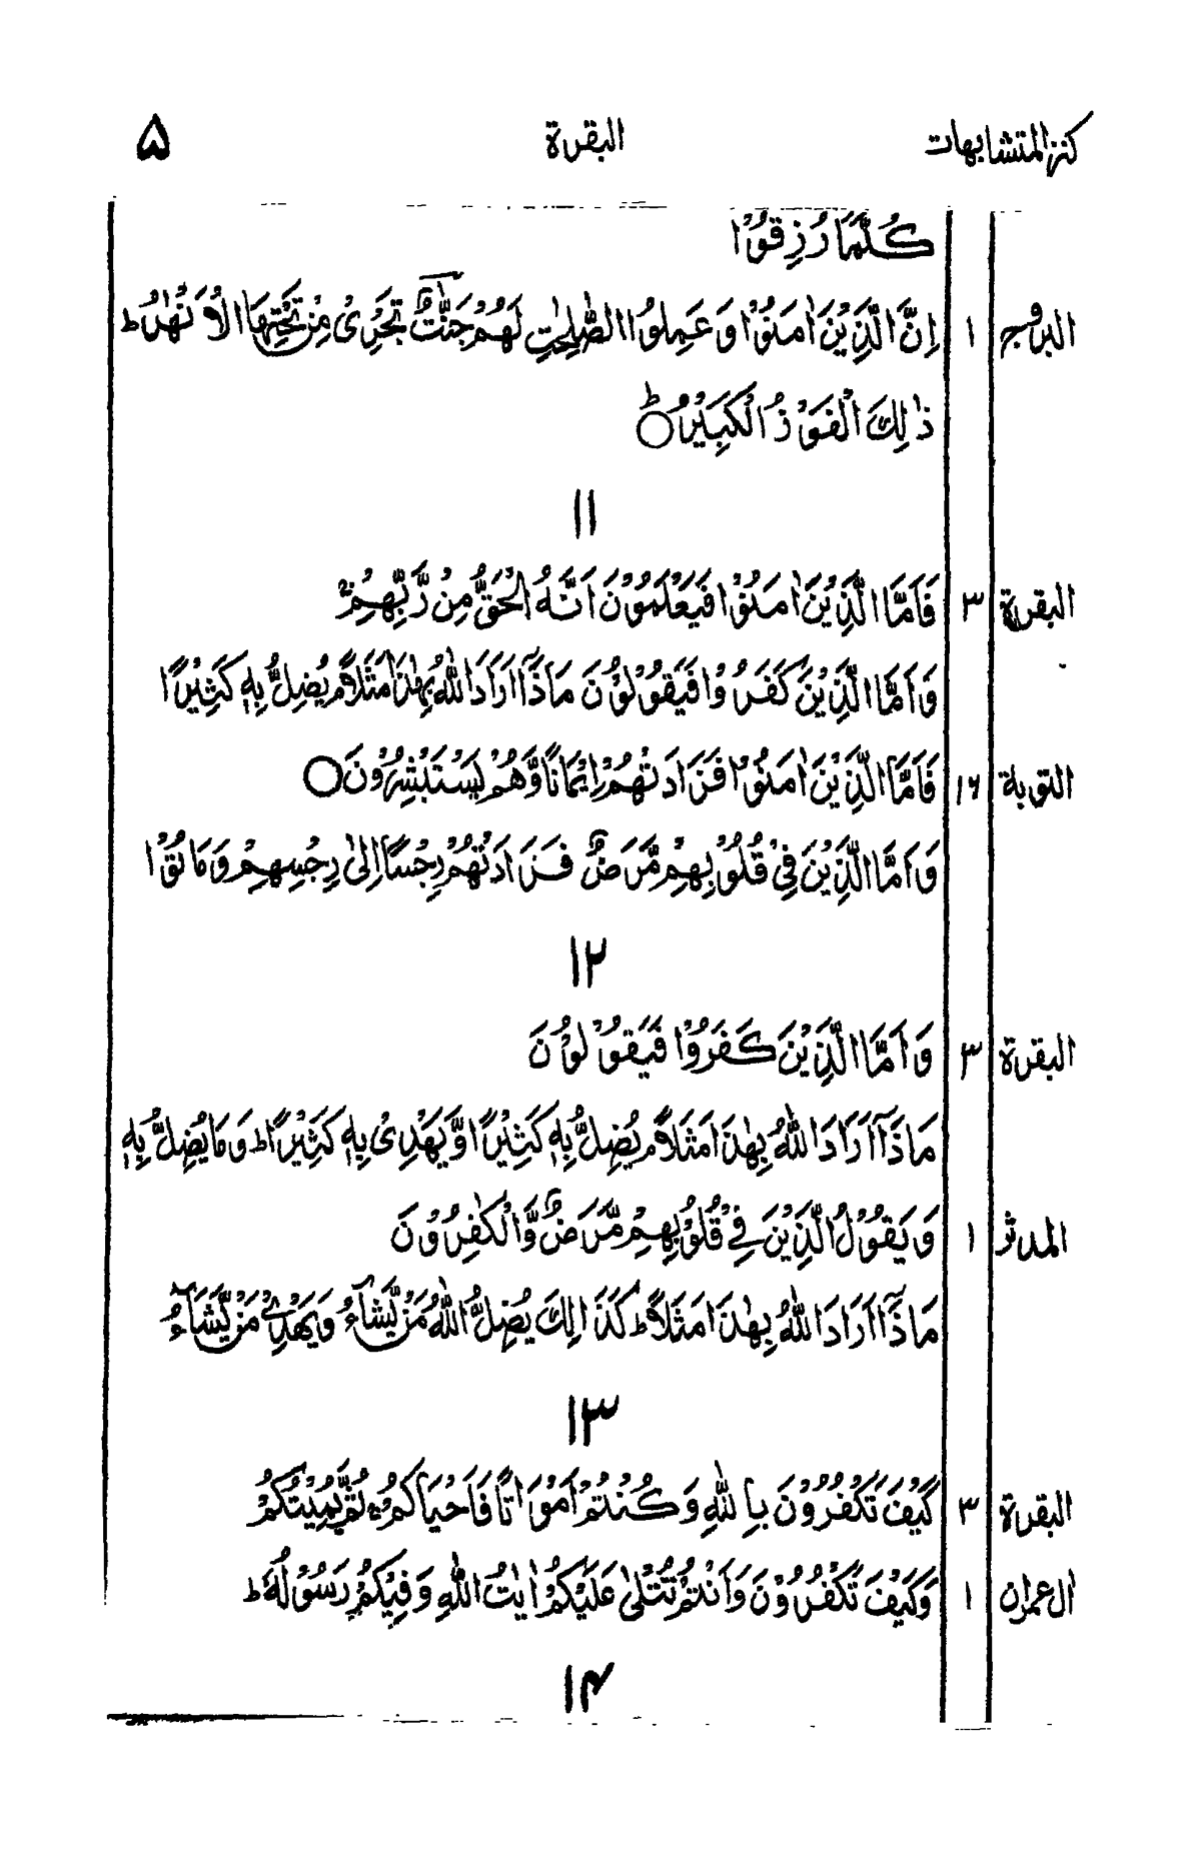 كنز المتشابهات البقرة ۵
كُلَّمَا رُزِقُوْا
البروج ١ اِنَّ الَّذِيْنَ اٰمَنُوْا وَ عَمِلُوا الصّٰلِحٰتِ لَهُمْ جَنّٰتٌ تَجْرِىْ مِنْ تَحْتِهَا الْاَنْهٰرُ ؕ
ذٰلِكَ الْفَوْزُ الْكَبِيْرُ ؕ○
١١
البقرة ٣ فَاَمَّا الَّذِيْنَ اٰمَنُوْا فَيَعْلَمُوْنَ اَنَّهُ الْحَقُّ مِنْ رَّبِّهِمْ ۚ
وَ اَمَّا الَّذِيْنَ كَفَرُوْا فَيَقُوْلُوْنَ مَاذَآ اَرَادَ اللّٰهُ بِهٰذَا مَثَلًا ۘ يُضِلُّ بِهٖ كَثِيْرًا
التوبة ١٦ فَاَمَّا الَّذِيْنَ اٰمَنُوْا فَزَادَتْهُمْ اِيْمَانًا وَّهُمْ يَسْتَبْشِرُوْنَ ○
وَ اَمَّا الَّذِيْنَ فِىْ قُلُوْبِهِمْ مَّرَضٌ فَزَادَتْهُمْ رِجْسًا اِلٰى رِجْسِهِمْ وَ مَاتُوْا
١٢
البقرة ٣ وَ اَمَّا الَّذِيْنَ كَفَرُوْا فَيَقُوْلُوْنَ
مَاذَآ اَرَادَ اللّٰهُ بِهٰذَا مَثَلًا ۘ يُضِلُّ بِهٖ كَثِيْرًا وَّ يَهْدِىْ بِهٖ كَثِيْرًا ؕ وَ مَا يُضِلُّ بِهٖ
المدثر ١ وَ يَقُوْلُ الَّذِيْنَ فِىْ قُلُوْبِهِمْ مَّرَضٌ وَّ الْكٰفِرُوْنَ
مَاذَآ اَرَادَ اللّٰهُ بِهٰذَا مَثَلًا ؕ كَذَالِكَ يُضِلُّ اللّٰهُ مَنْ يَّشَآءُ وَ يَهْدِىْ مَنْ يَّشَآءُ
١٣
البقرة ٣ كَيْفَ تَكْفُرُوْنَ بِاللّٰهِ وَ كُنْتُمْ اَمْوَاتًا فَاَحْيَاكُمْ ۚ ثُمَّ يُمِيْتُكُمْ
اٰل عمرٰن ١ وَ كَيْفَ تَكْفُرُوْنَ وَ اَنْتُمْ تُتْلٰى عَلَيْكُمْ اٰيٰتُ اللّٰهِ وَ فِيْكُمْ رَسُوْلُهٗ ؕ
١۴